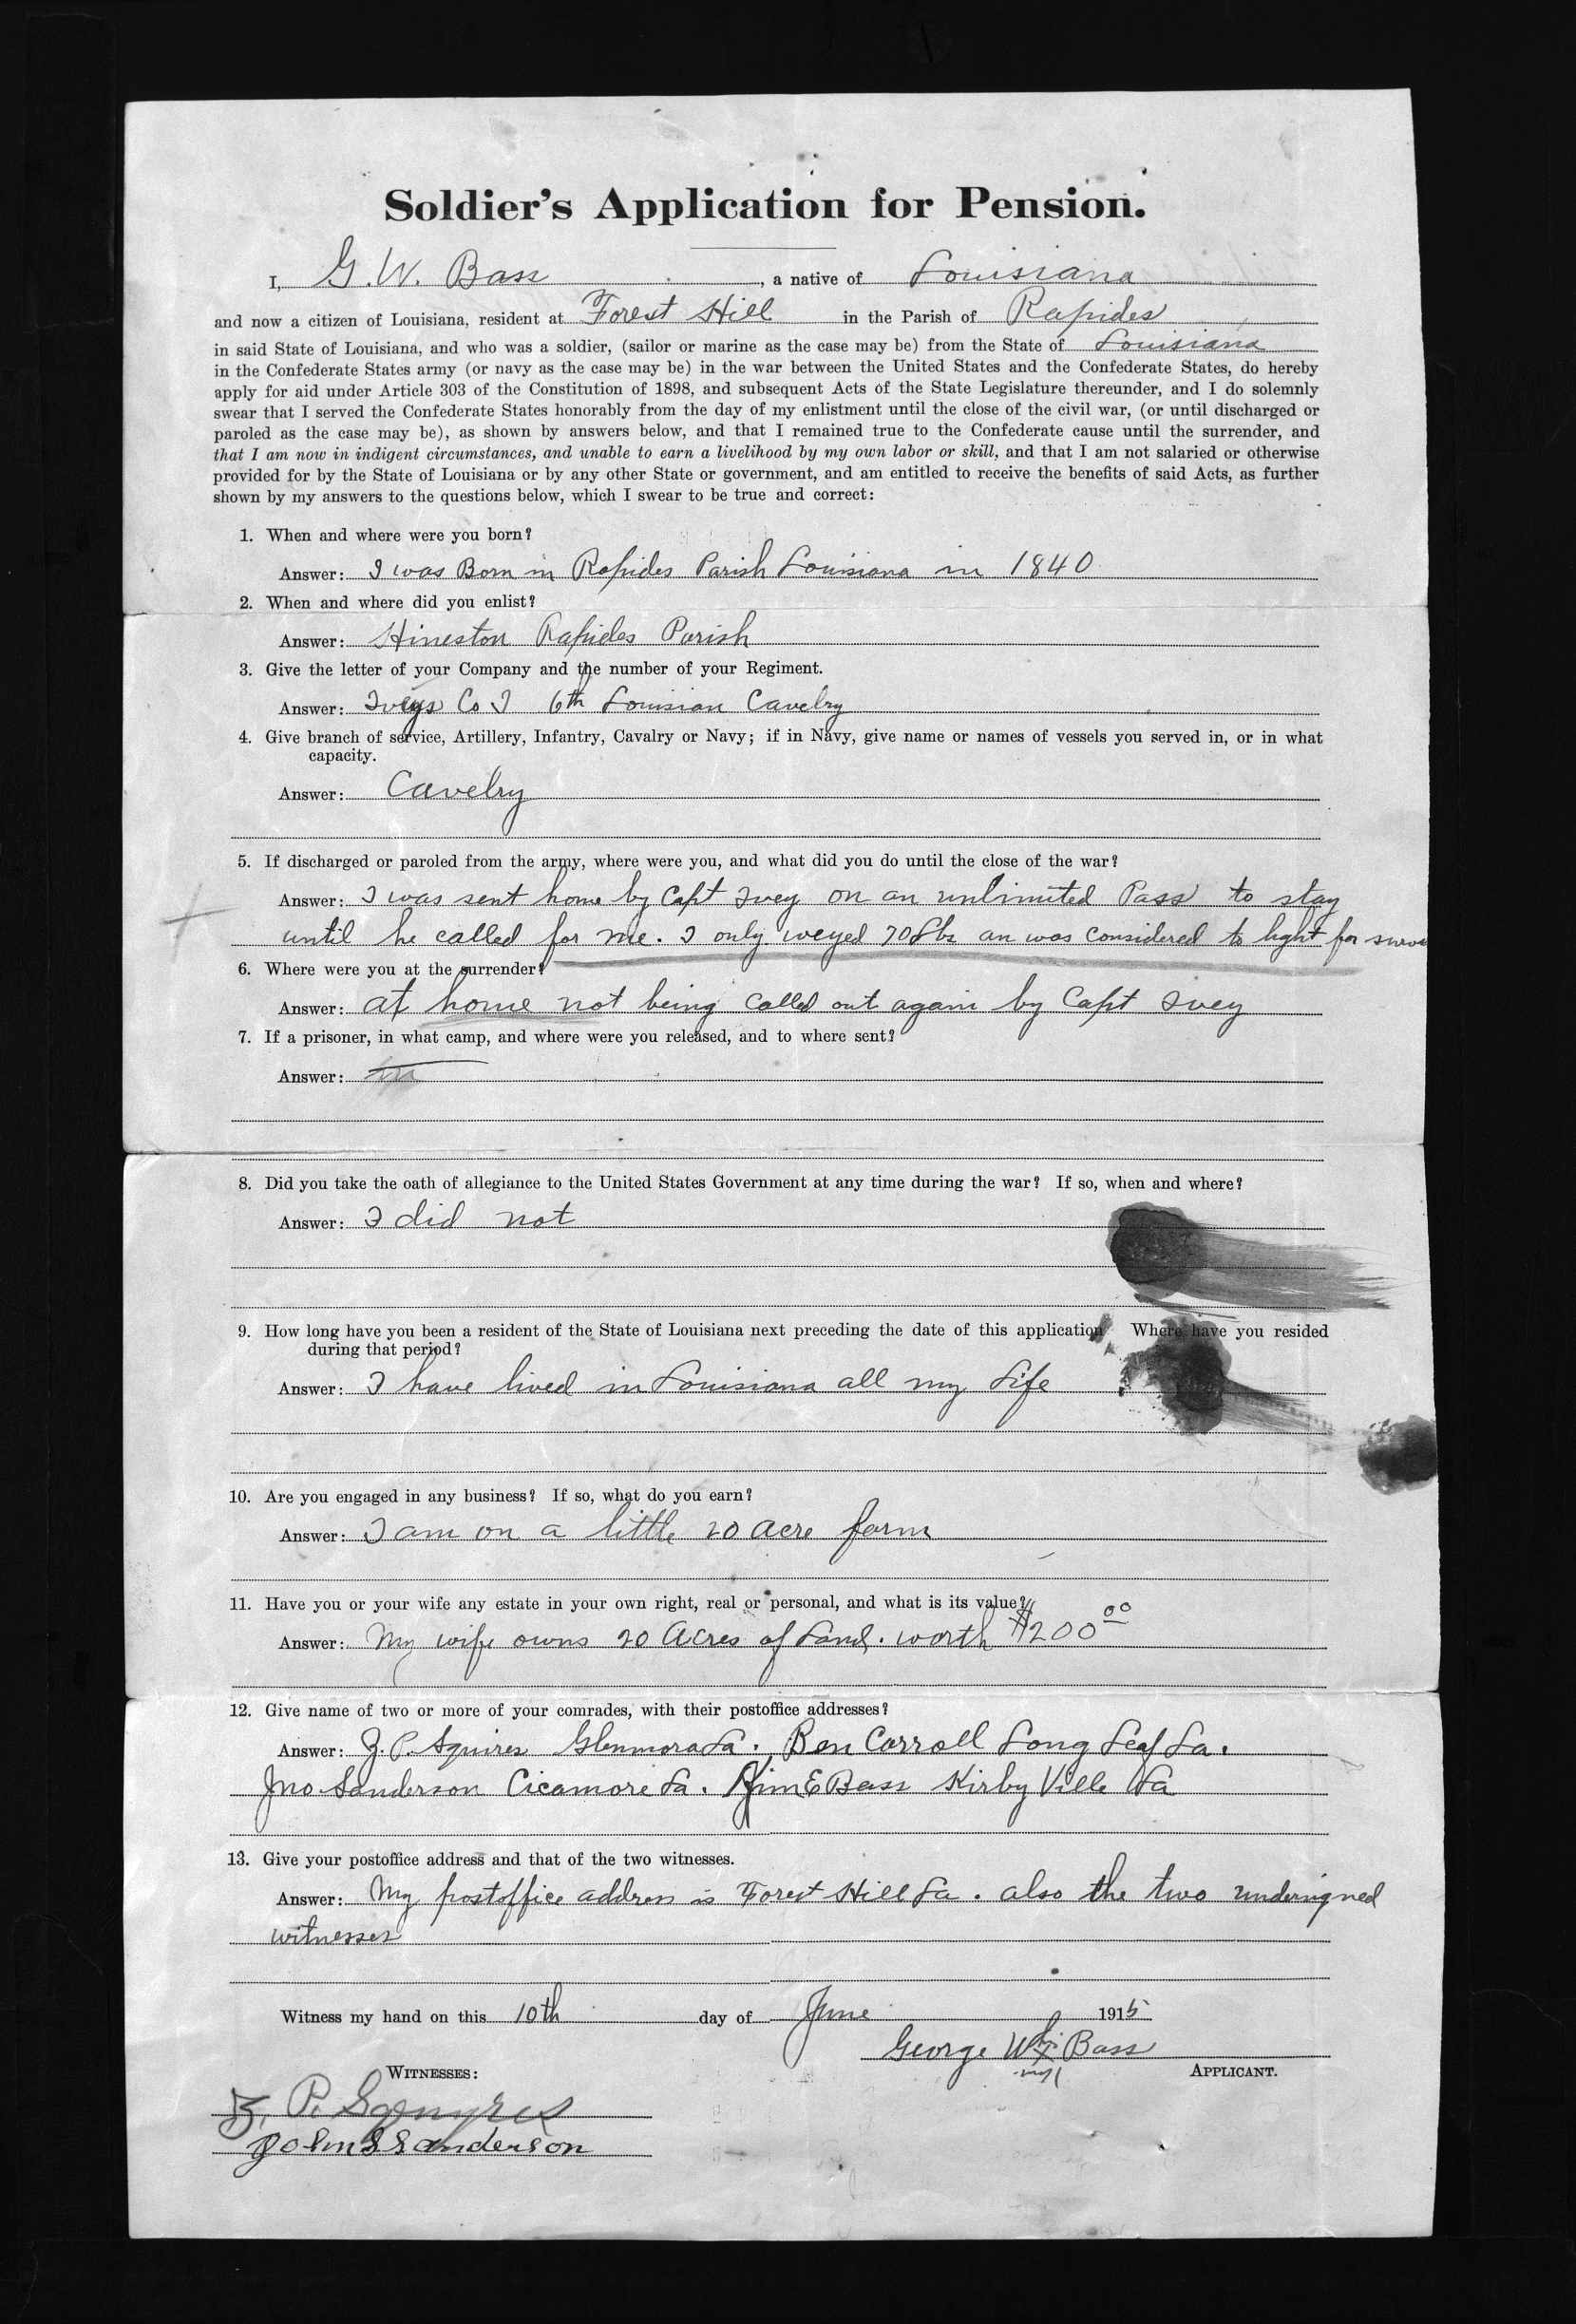 Soldier's Application for Pension.
I, G. W. Bass, a native of Louisiana
and now a citizen of Louisiana, resident at Forest Hill in the Parish of Rapides
in said State of Louisiana, and who was a soldier, (sailor or marine as the case may be) from the State of Louisiana
in the Confederate States army (or navy as the case may be) in the war between the United States and the Confederate States, do hereby
apply for aid under Article 303 of the Constitution of 1898, and subsequent Acts of the State Legislature thereunder, and I do solemnly
swear that I served the Confederate States honorably from the day of my enlistment until the close of the civil war, (or until discharged or
paroled as the case may be), as shown by answers below, and that I remained true to the Confederate cause until the surrender, and
that I am now in indigent circumstances, and unable to earn a livelihood by my own labor or skill, and that I am not salaried or otherwise
provided for by the State of Louisiana or by any other State or government, and am entitled to receive the benefits of said Acts, as further
shown by my answers to the questions below, which I swear to be true and correct:
1. When and where were you born?
Answer: I was Born in Rapides Parish Louisiana in 1840
2. When and where did you enlist?
Answer: Hineston Rapides Parish
3. Give the letter of your Company and the number of your Regiment.
Answer: Iveys Co I 6th Lousian Cavelry
4. Give branch of service, Artillery, Infantry, Cavalry or Navy; if in Navy, give name or names of vessels you served in, or in what
capacity.
Answer: Cavelry
5. If discharged or paroled from the army, where were you, and what did you do until the close of the war?
Answer: I was sent home by Capt Ivey on an unlimited Pass to stay
until he called for me. I only weyed 70 Lbs an was considered to light for
6. Where were you at the surrender?
Answer: at home not being called out again by Capt Ivey
7. If a prisoner, in what camp, and where were you released, and to where sent?
Answer:
8. Did you take the oath of allegiance to the United States Government at any time during the war? If so, when and where?
Answer: I did not
9. How long have you been a resident of the State of Louisiana next preceding the date of this application Where have you resided
during that period?
Answer: I have lived in Louisiana all my Life
10. Are you engaged in any business? If so, what do you earn?
Answer: I am on a little 20 acre farm
11. Have you or your wife any estate in your own right, real or personal, and what is its value?
Answer: My wife owns 20 Acres of Land. worth $200 00
12. Give name of two or more of your comrades, with their postoffice addresses?
Answer: Z. P. Squires Glenmora La. Ben Carroll Long Leaf La.
Jno. Sanderson Cicamore La. Jim E Bass Kirby Ville La
13. Give your postoffice address and that of the two witnesses.
Answer: My postoffice address is Forest Hill La. also the two undersigned
witnesses
Witness my hand on this 10th day of June 1915
George W X Bass
WITNESSES: APPLICANT.
Z. P. Sqmyres
John S Sanderson